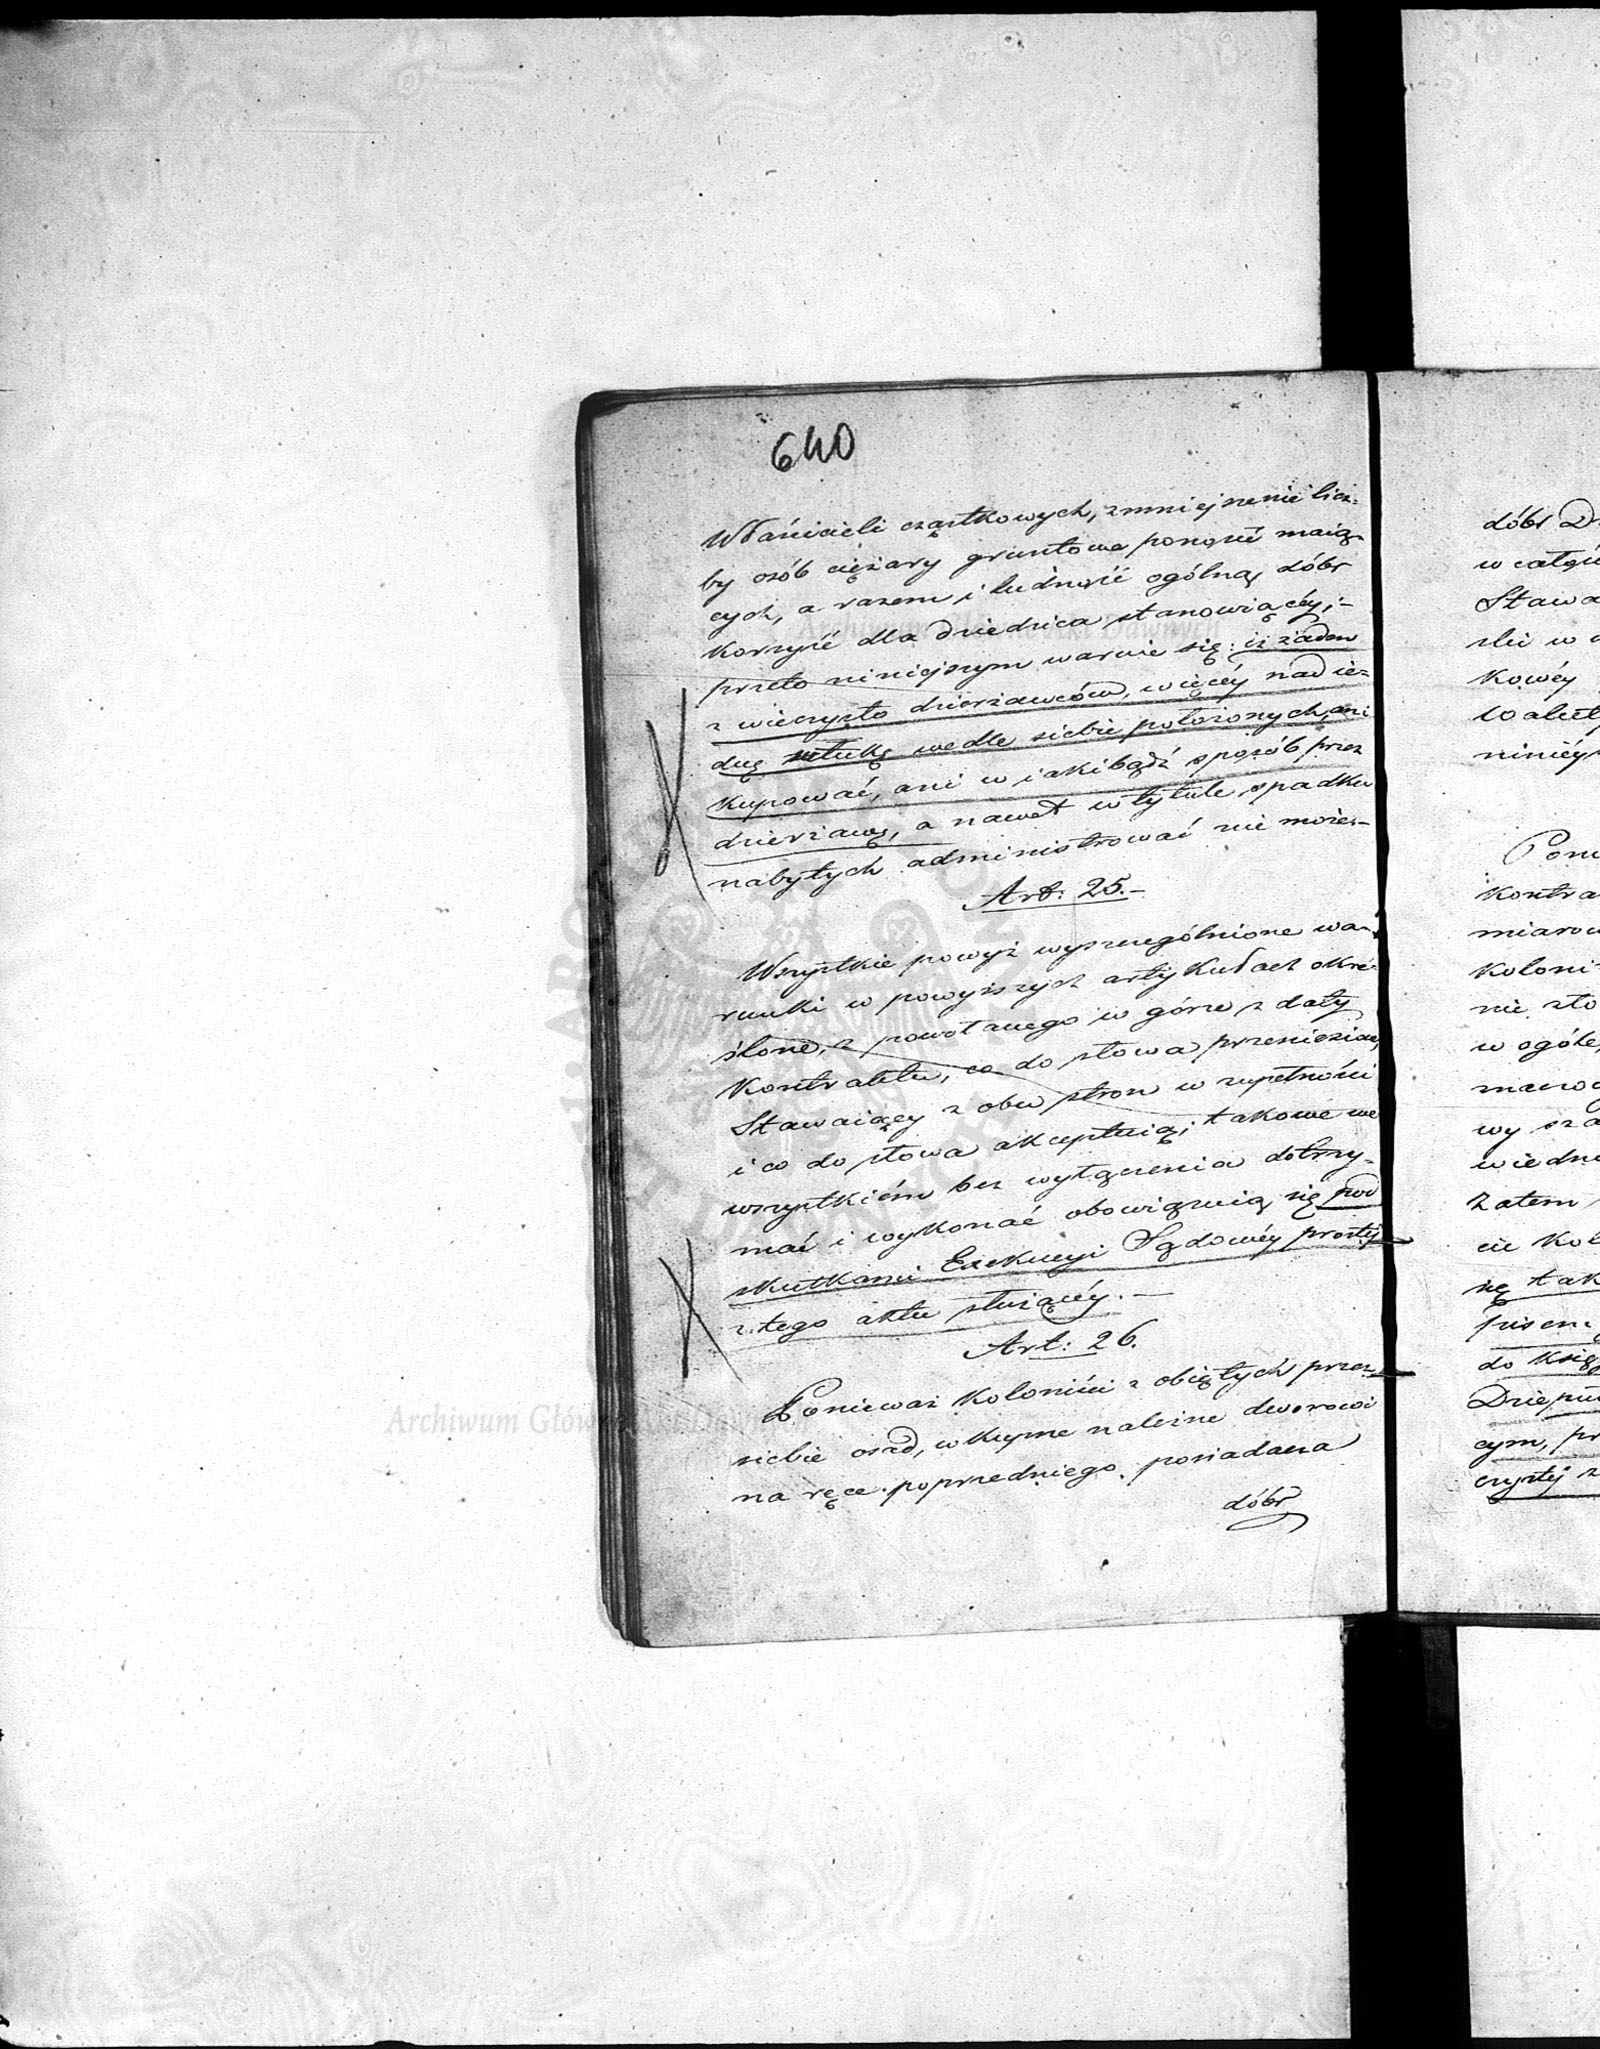 640
Właścicieli cząstkowych, zmniejszenie licz-
by osób ciężary gruntowe ponosić maią-
cych, a razem i ludność ogólną dóbr
korzyść dla dziedzica stanowiącéy;-
przeto niniejszym waruie się: iż żaden
z wieczysto dzierżawców, więcéy nad ie-
dnę sztukę wedle siebie położonych, ani
kupować, ani w iakibądź sposób przez
dzierżawę, a nawet w tytule spadku
nabytych administrować nie może.-
Art: 25.-
Wszystkie powyż wyszczególnione wa-
runki w powyższych artykułach okre-
ślone, z powołanego w górze z daty
Kontraktu, co do słowa przeniesione,
Stawaiący z obu stron w zupełności
i co do słowa akceptuią; takowe we
wszystkiém bez wyłączenia dotrzy-
mać i wykonać obowiązuią się pod
skutkami Exekucyi Sądowéy prostéy
z tego aktu służącéy.-
Art: 26.
Ponieważ Koloniści z obiętych przez
siebie osad, wkupne należne dworowi
na ręce poprzedniego posiadacza
dóbr
dóbr
w
Stawa
w
kowéy
Kontra
w ogóle,
wy
Zatem
się tak
do księg
cym,
Archiwum Główne Akt Dawnych
Archiwum Główne Akt Dawnych